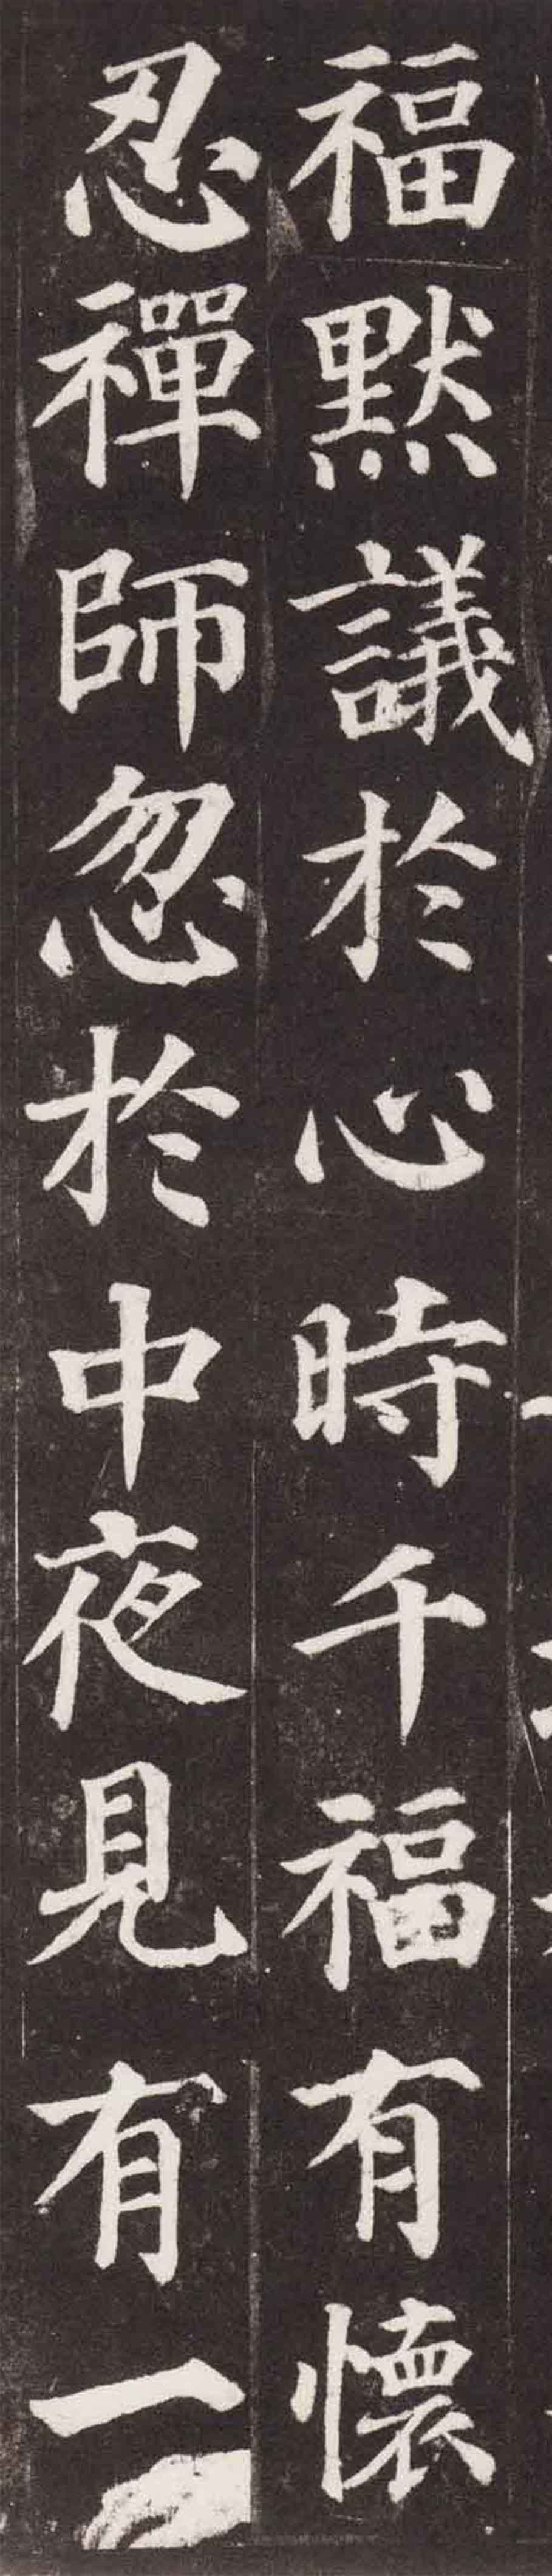 福默議於心時千福有懷
忍禪師忽於中夜見有一